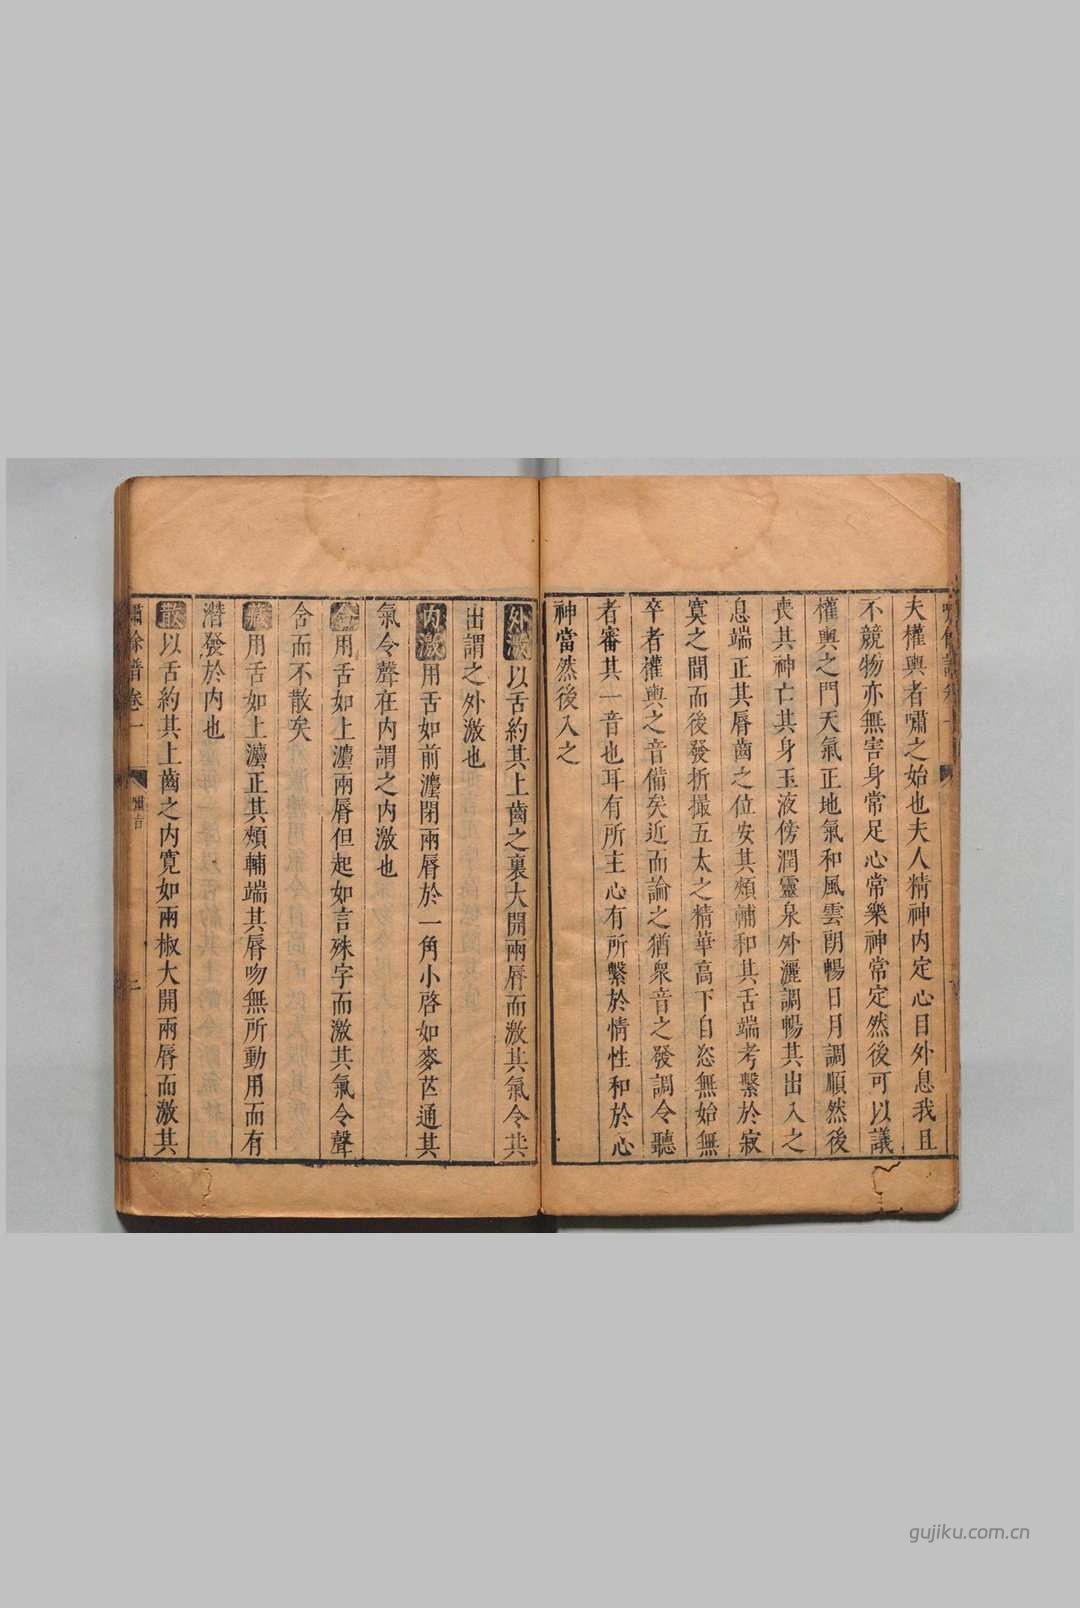 夫權輿者嘯之始也夫人精神内定心目外息我且
不競物亦無害身常足心常樂神常定然後可以議
權輿之門天氣正地氣和風雲朗暢日月調順然後
喪其神亡其身玉液傍潤靈泉外灑調暢其出入之
息端正其唇齒之位安其頰輔和其舌端考繫於寂
寞之間而後發折撮五太之精華高下自恣無始無
卒者權輿之音備矣近而論之猶衆音之發調令聽
者審其一音也耳有所主心有所繫於情性和於心
神當然後入之
外激以舌約其上齒之裏大開兩唇而激其氣令其
出謂之外激也
内激用舌如前灋閉兩唇於一角小啓如麥芒通其
氣令聲在内謂之内激也
含用舌如上灋兩唇但起如言殊字而激其氣令聲
含而不散矣
藏用舌如上灋正其頰輔端其唇吻無所動用而有
潛發於内也
散以舌約其上齒之内寛如兩椒大開兩唇而激其
嘯餘譜卷一
嘯旨
二
gujiku.com.cn